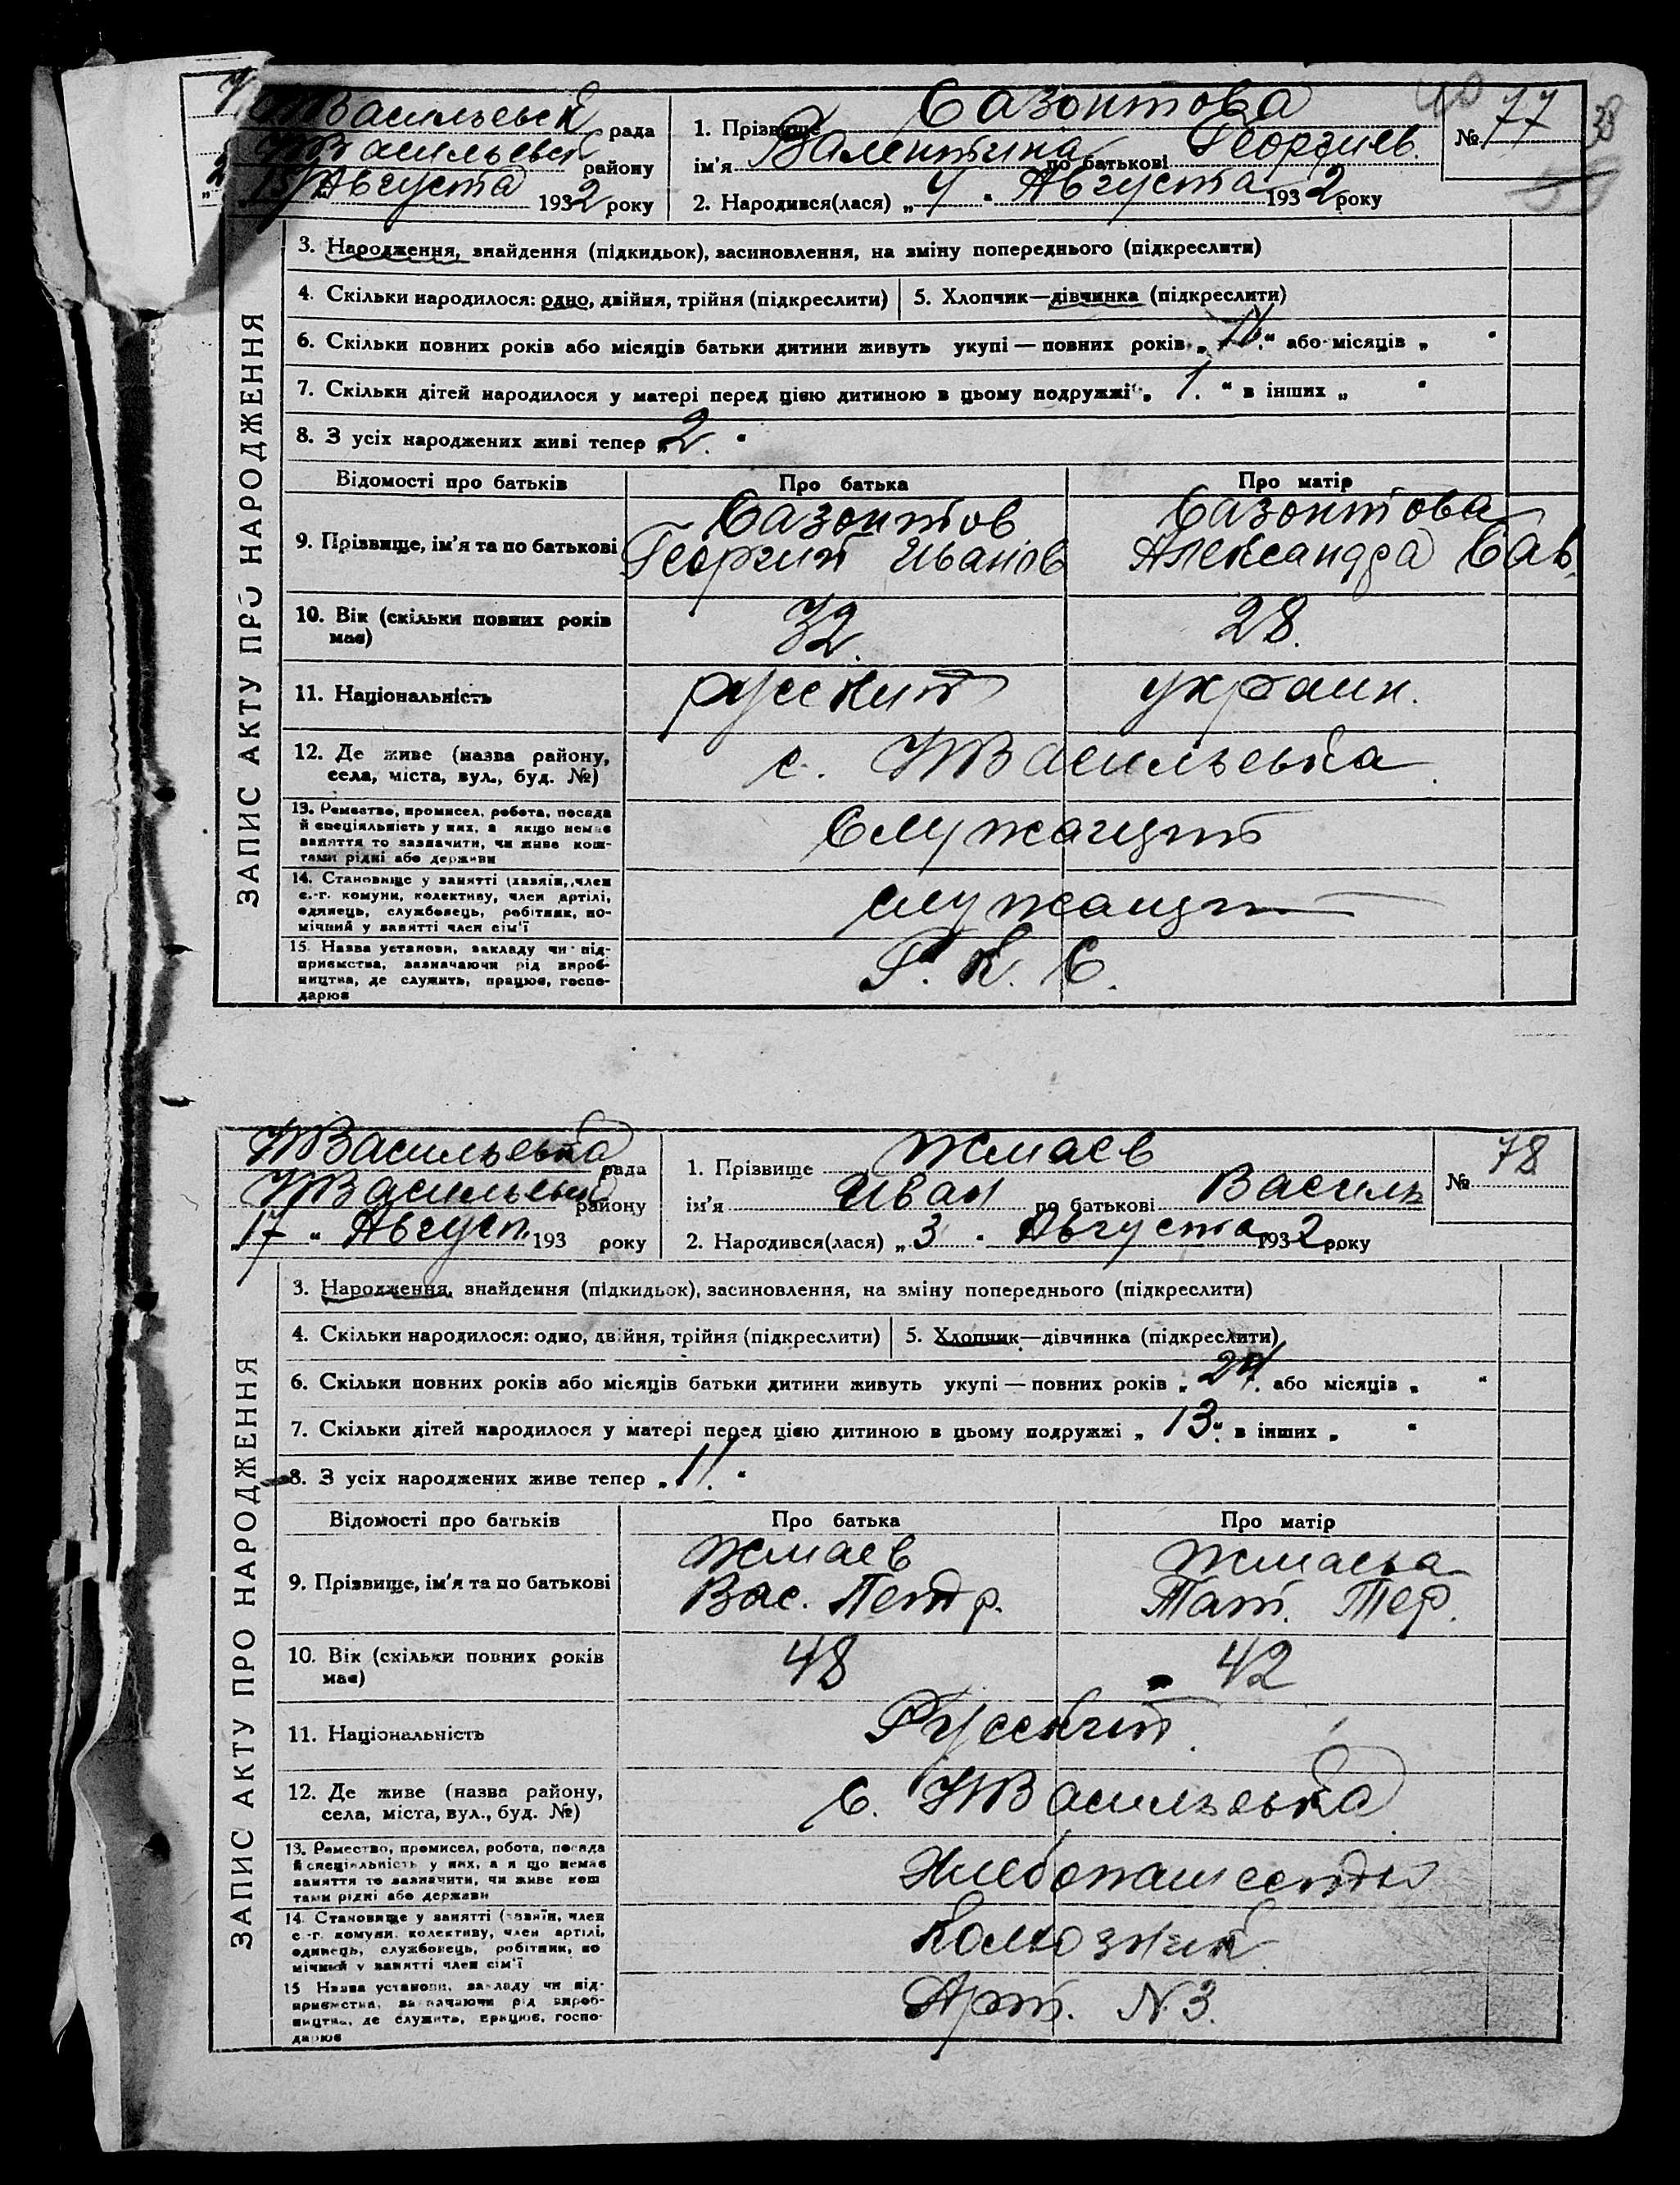 Васильевск рада
Васильевск району
15 Августа 1932 року
1. Прізвище Сазонтова
ім'я Валентина по батькові Георгиев.
2. Народився(лася) „4" Августа 1932 року
№ 77
38
ЗАПИС АКТУ ПРО НАРОДЖЕННЯ
3. Народження, знайдення (підкидьок), засиновлення, на зміну попереднього (підкреслити)
4. Скільки народилося: одно, двійня, трійня (підкреслити)
5. Хлопчик—дівчинка (підкреслити)
6. Скільки повних років або місяців батьки дитини живуть укупі — повних років „ “ або місяців „ "
7. Скільки дітей народилося у матері перед цією дитиною в цьому подружжі „ 1. “ в інших „ "
8. З усіх народжених живі тепер „ 2. "
Відомості про батьків Про батька Про матір
9. Прізвище, ім'я та по батькові
Сазонтов Сазонтова
Георгий Иванов Александра Сав.
10. Вік (скільки повних років має) 32. 28.
11. Національність русский украин.
12. Де живе (назва району,
села, міста, вул., буд. №)
с. Васильевка
13. Ремество, промисел, робота, посада
й спеціяльність у них, а якщо немає
заняття то зазначити, чи живе кош-
тами рідні або держави
Служащий
14. Становище у занятті (хазяїн, член
с.-г. комуни, колективу, член артілі,
одинець, службовець, робітник, по-
мічний у занятті член сім'ї
служащий
15. Назва установи, закладу чи під-
приємства, зазначаючи рід вироб-
ництва, де служить, працює, госпо-
дарює
Р. К. С.
Васильевка рада
Васильевка району
„17" Август. 193 року
1. Прізвище Жмаев
ім'я Иван по батькові Василь
2. Народився(лася) „3" Августа 1932 року
№ 78
ЗАПИС АКТУ ПРО НАРОДЖЕННЯ
3. Народження, знайдення (підкидьок), засиновлення, на зміну попереднього (підкреслити)
4. Скільки народилося: одно, двійня, трійня (підкреслити)
5. Хлопчик—дівчинка (підкреслити)
6. Скільки повних років або місяців батьки дитини живуть укупі — повних років „ 24. або місяців „ "
7. Скільки дітей народилося у матері перед цією дитиною в цьому подружжі „ 13." в інших „ "
8. З усіх народжених живе тепер „ 11. "
Відомості про батьків Про батька Про матір
9. Прізвище, ім'я та по батькові
Жмаев Жмаева
Вас. Петр. Тат. Тер.
10. Вік (скільки повних років має) 48 42
11. Національність Русский.
12. Де живе (назва району,
села, міста, вул., буд. №)
С. Васильевка
13. Ремество, промисел, робота, посада
й спеціяльність у них, а якщо немає
заняття то зазначити, чи живе кош
тами рідні або держави
Хлебопашество
14. Становище у занятті (хазяїн, член
с.-г. комуни, колективу, член артілі,
одинець, службовець, робітник, по
мічний у занятті член сім'ї
Колхозник
15 Назва установи, закладу чи під-
приємства, зазначаючи рід вироб-
ництва, де служить, працює, госпо-
дарює
Арт. N 3.